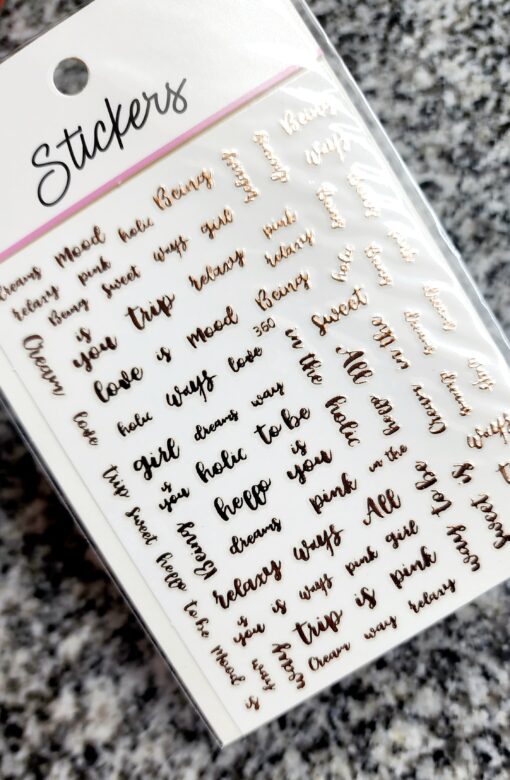 Stickers
Being
Being
ways
Dreams Mood holic
relaxy pink ways girl
Being sweet relaxy pink
is
you trip relaxy
Cream
love is Mood Being
holic ways love 360
sweet
love
girl dreams way in the All
is
you holic to be holic
hello is you
Being dreams pink in the
trip sweet hello to be Mood
relaxy ways All to be
is
you is ways pink girl
trip is pink
way
is
Cream way relaxy
dreams
dreams
dreams
Cream
ways
ways
is
sweet
way